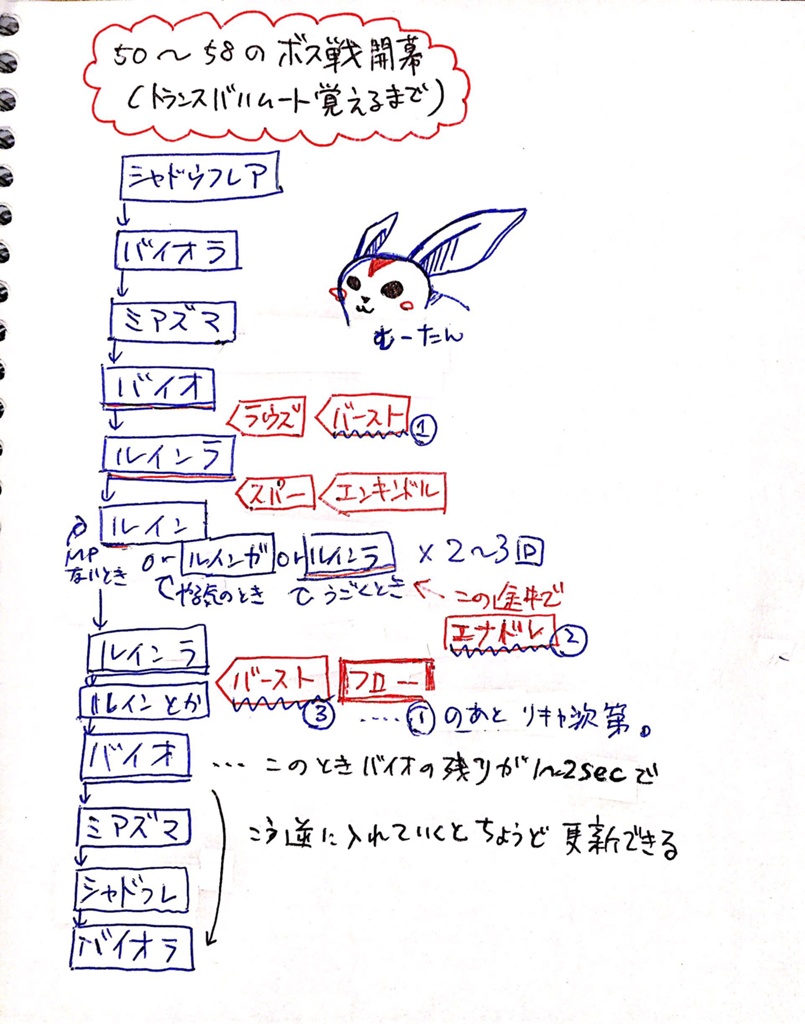 50〜58のボス戦開幕
(トランスバハムート覚えるまで)
シャドウフレア
バイオラ
ミアズマ
むーたん
バイオ
ラウズ バースト ①
ルインラ
スパー エンキンドル
ルイン
MPないとき
or ルインガ or ルインラ ×2〜3回
やる気のとき うごくとき この途中で
エナドレ ②
ルインラ
バースト ③ フロー
ルインとか
····①のあと リキャ次第。
バイオ … このときバイオの残りが1〜2secで
ミアズマ こう逆に入れていくとちょうど更新できる
シャドウフレ
バイオラ